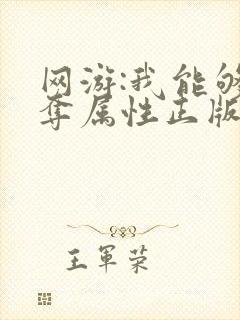 网游:我能够
夺属性正版
王军荣